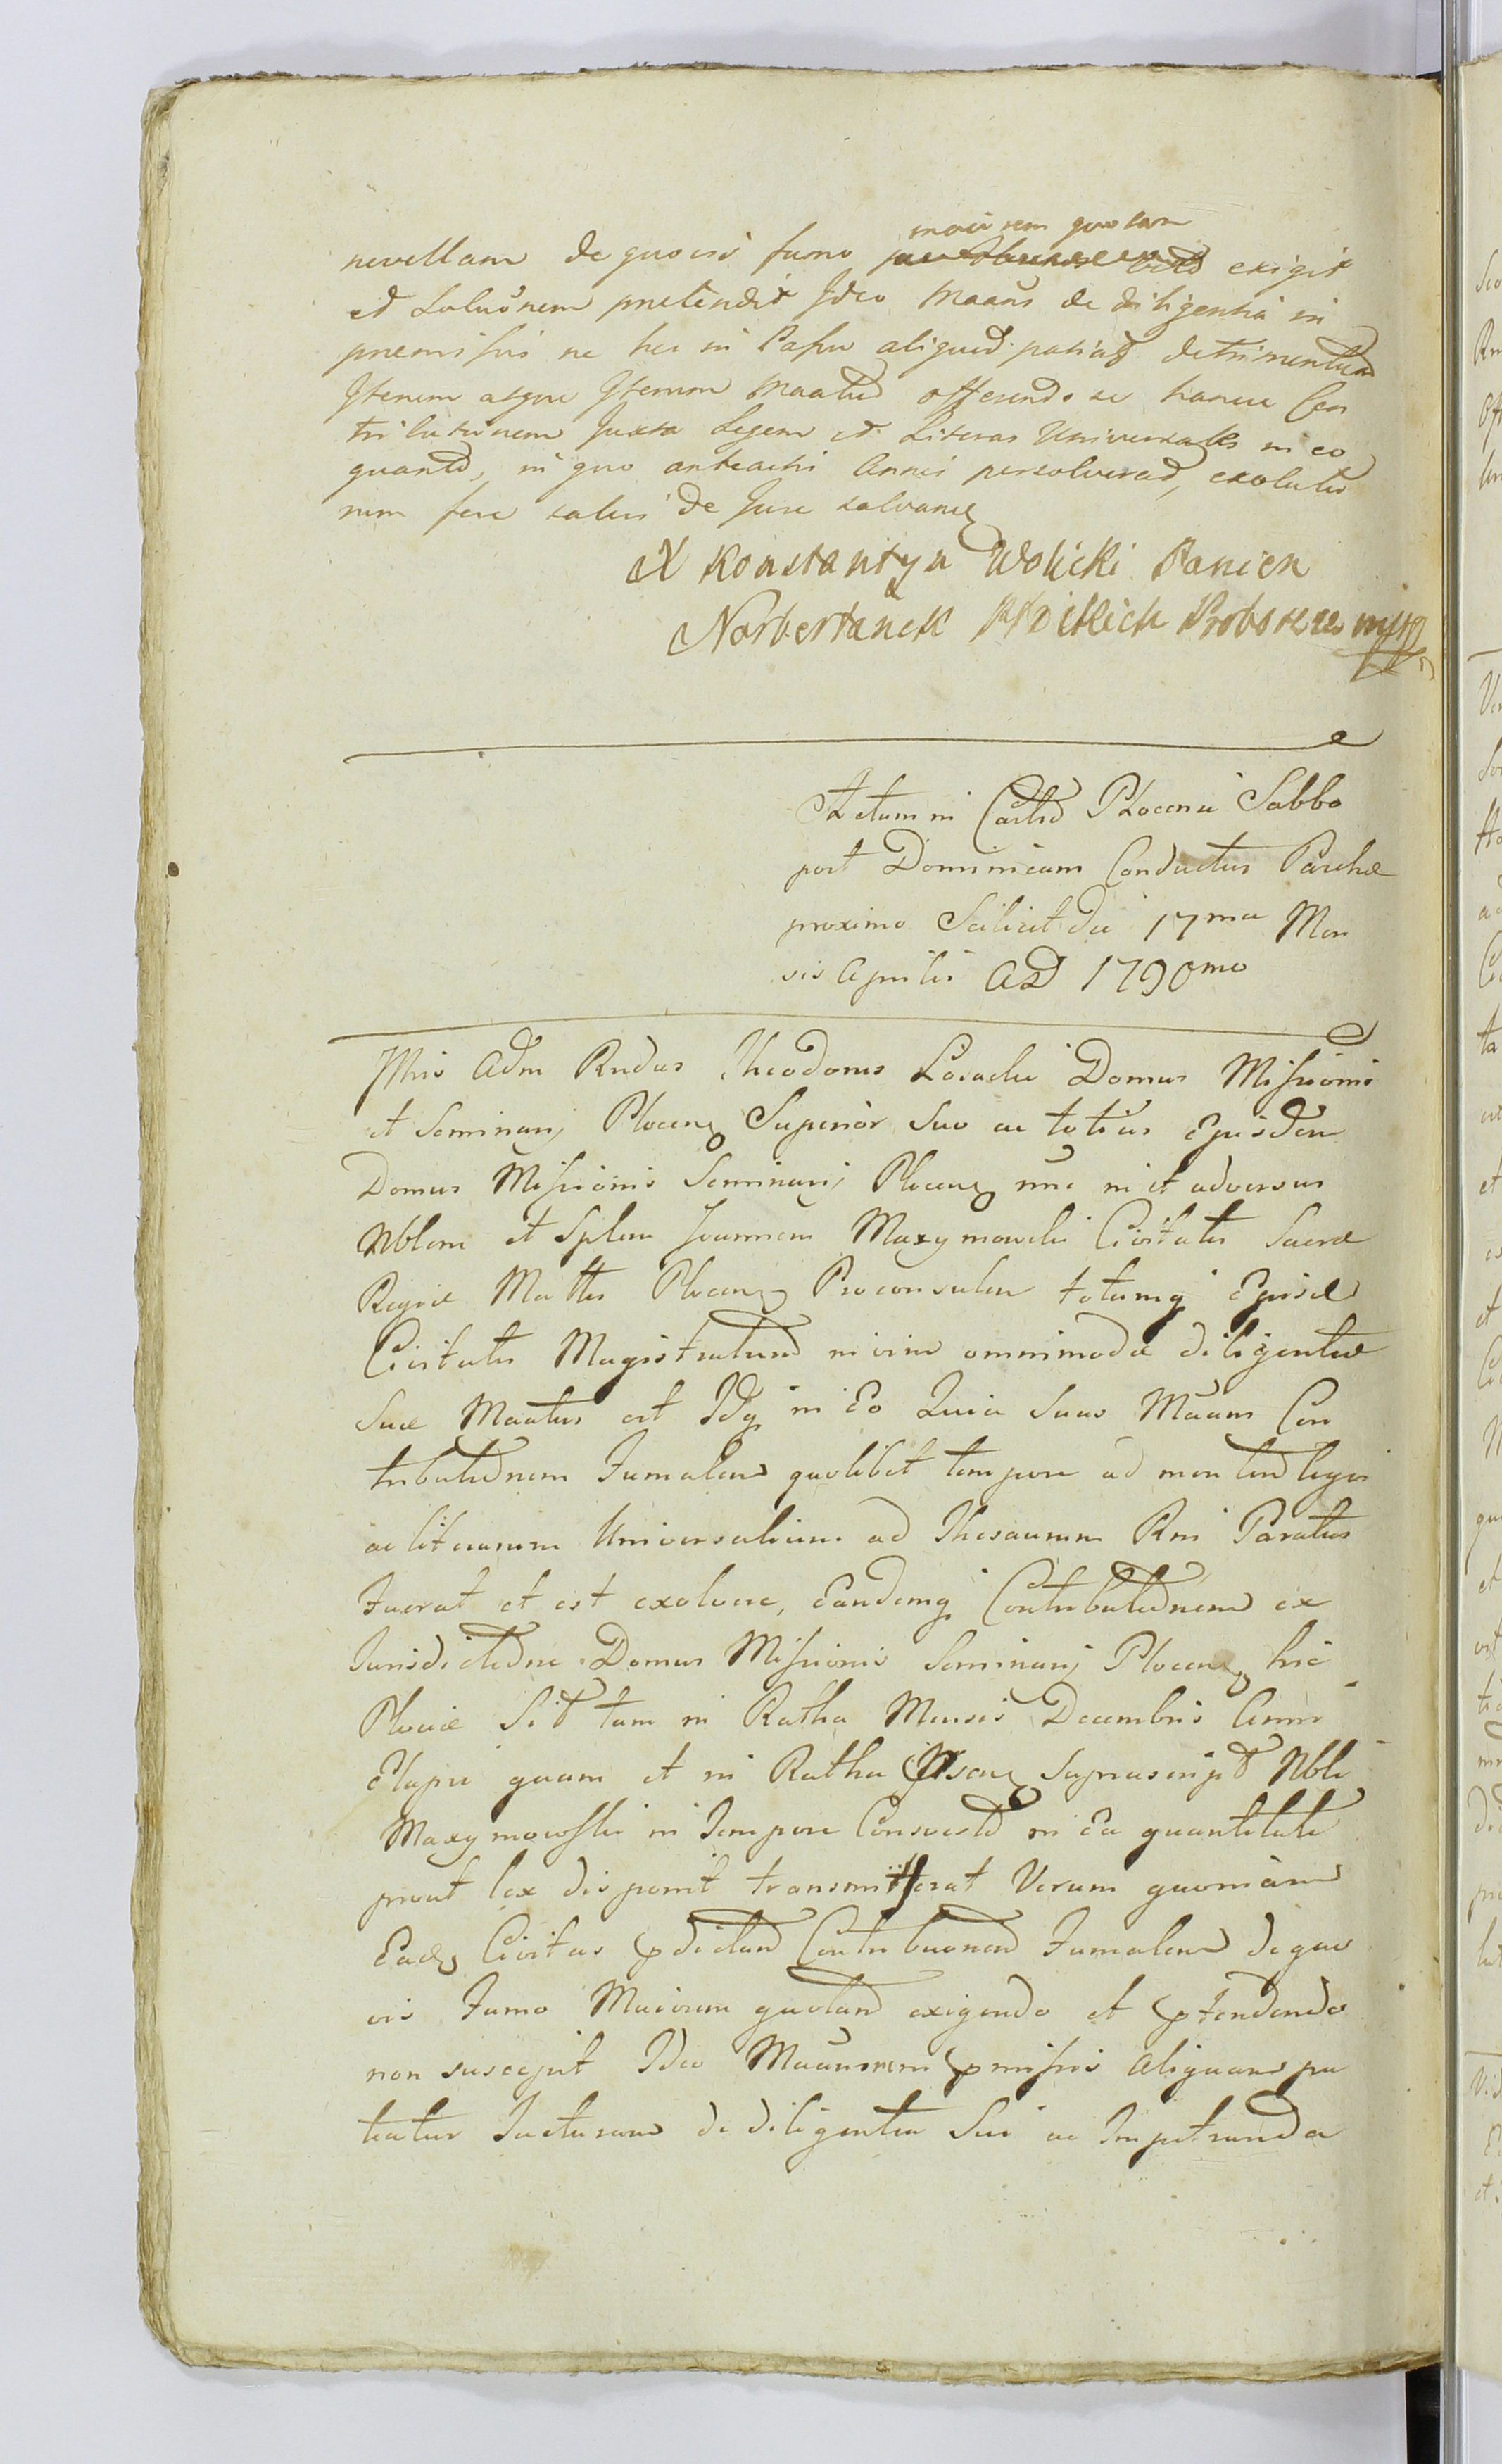 maiorem quotam
nevellam de quovis fumo exigit
et Soluõnem pretendit Ideo Maañs de diligentia in
premissis ne hec in Passu aliquid patiat detrimentum
Iterum atque Iterum Maatur offerendo se hancce Con
tributionem Juxta Legem et Literas Universales in eo
quanto, in quo anteactis Annis persolverat, exoluturum
rum fere salvis de Jure salvand
X Konstantyn Wolicki Panien
Norbertanek Płockich Proboszcz mpp
Actum in Castro Plocensi Sabbo
post Dominicam Conductus Paschæ
proximo Scilicet die 17ma Men
sis Aprilis AD 1790mo
Illris Adm Rndus Theodorus Domus Missionis
et Seminarij Plocens Superior Suo ac totius Ejusdem
Domus Missionis Seminarij Plocens nne in et adversus
Nblem et Splem Joannem Maxymowski Civitatis Sacræ
Regiæ Mattis Plocens Proconsulem totumq Ejusd
Civitatis Magistratum in vim omnimodæ diligentiæ
Suæ Maatus est Idq in Eo Quia Suus Maans Con
tributionem Fumalem quolibet tempore ad mentem legis
ac literarum Universalium ad Thesaurum Rni Paratus
Fuerat et est exolvere, Eandemq Contributionem ex
Jurisdictione Domus Missionis Seminarij Plocens hic
Plociæ Sit tam in Ratha Mensis Decembris Anni
Elapsi quam et in Ratha Suprascript Nbli
Maxymowski in Tempore Consveto in Ea quantitate
prout lex disponit transmitterat Verum quoniam
Ead Civitas pdictam Contribuonem Fumalem de quo
vis Fumo Maiorem quotam exigendo et ptendendo
non suscepit Ideo Maans pmissis aliquam pa
teatur Jacturam de diligentia Sui ac Impetranda